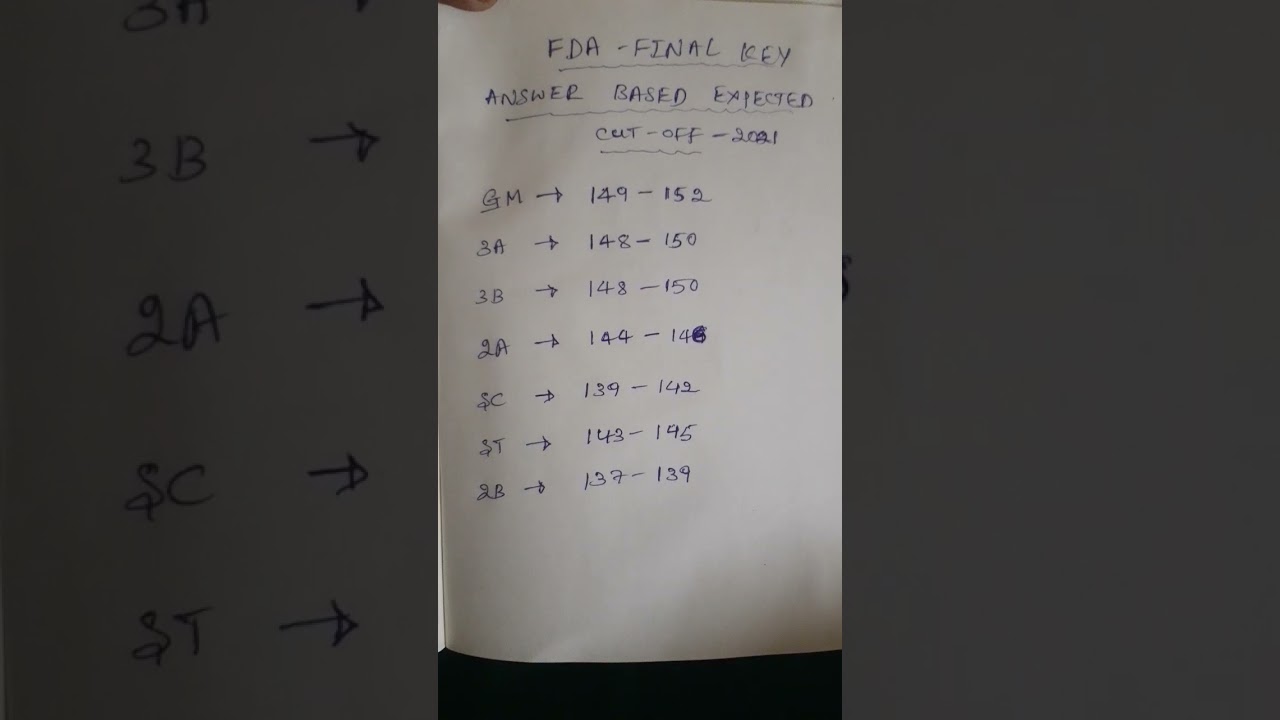 FDA - FINAL KEY
ANSWER BASED EXPECTED
CUT-OFF - 2021
GM → 149 - 152
3A → 148 - 150
3B → 148 - 150
2A → 144 - 146
SC → 139 - 142
ST → 143 - 145
2B → 137 - 139
3A
3B →
2A →
SC →
ST →